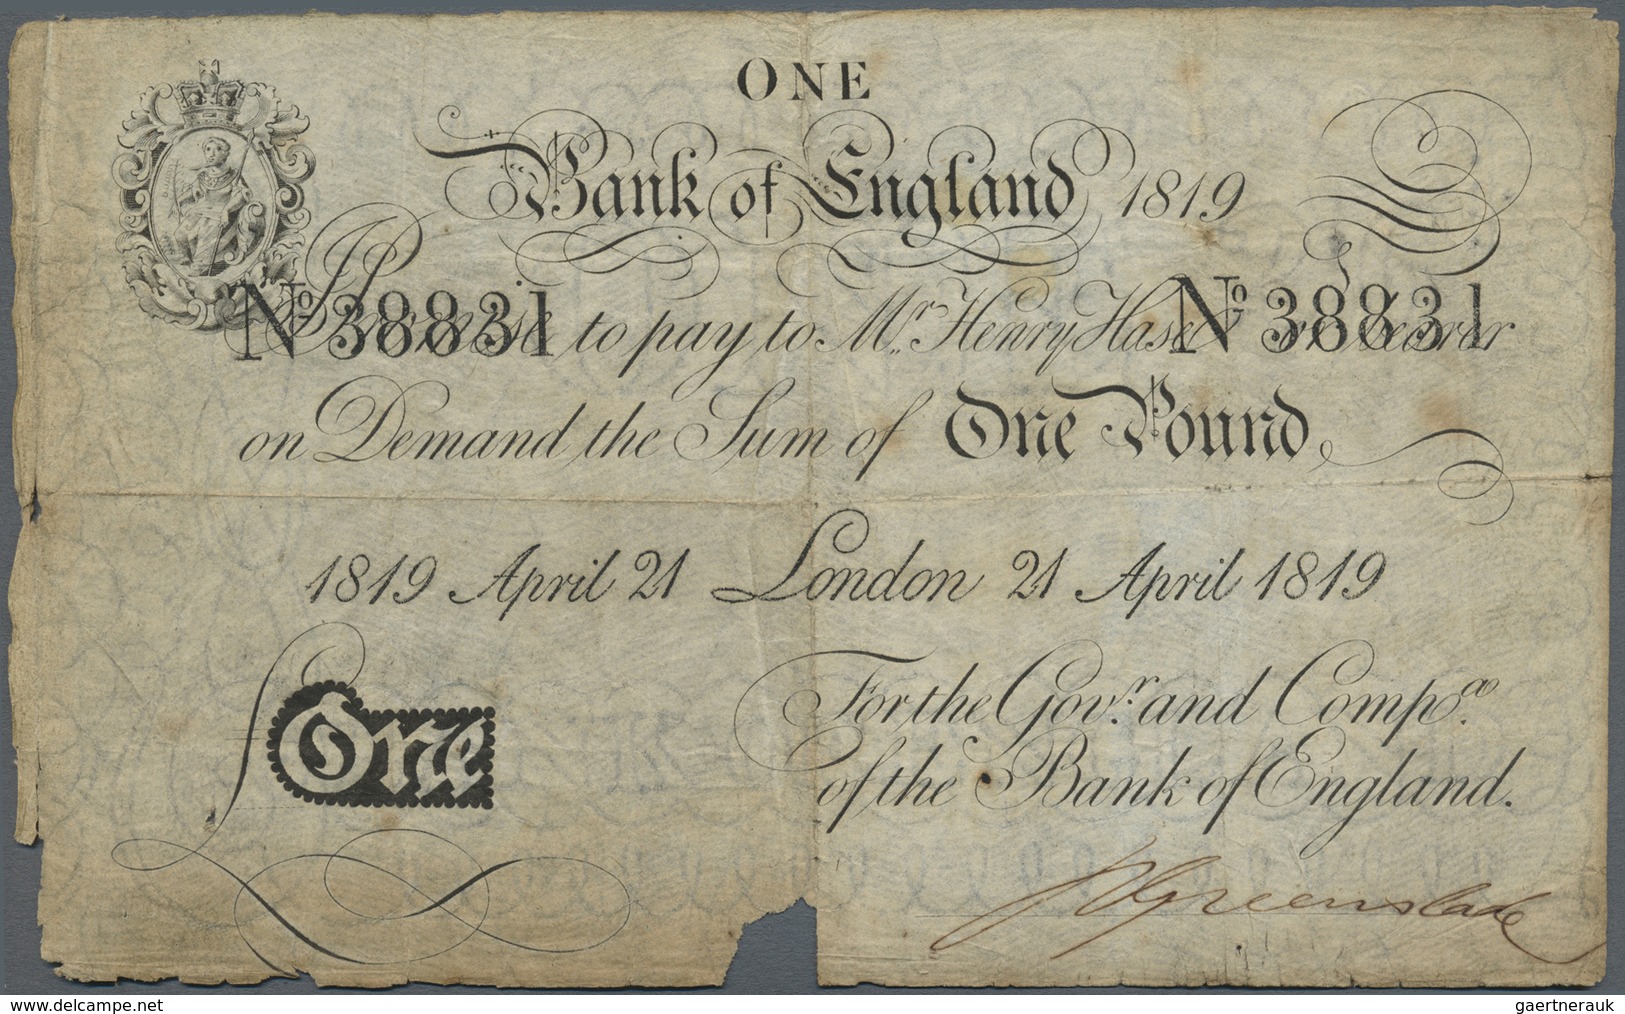 ONE
Bank of England 1819
Nº 38831 Nº 38831
I Promise to pay to Mr. Henry Hase or bearer
on Demand the Sum of One Pound
1819 April 21 London 21 April 1819
One
For the Govr. and Compa.
of the Bank of England.
Greenslade
delcampe.net
gaertnerauk